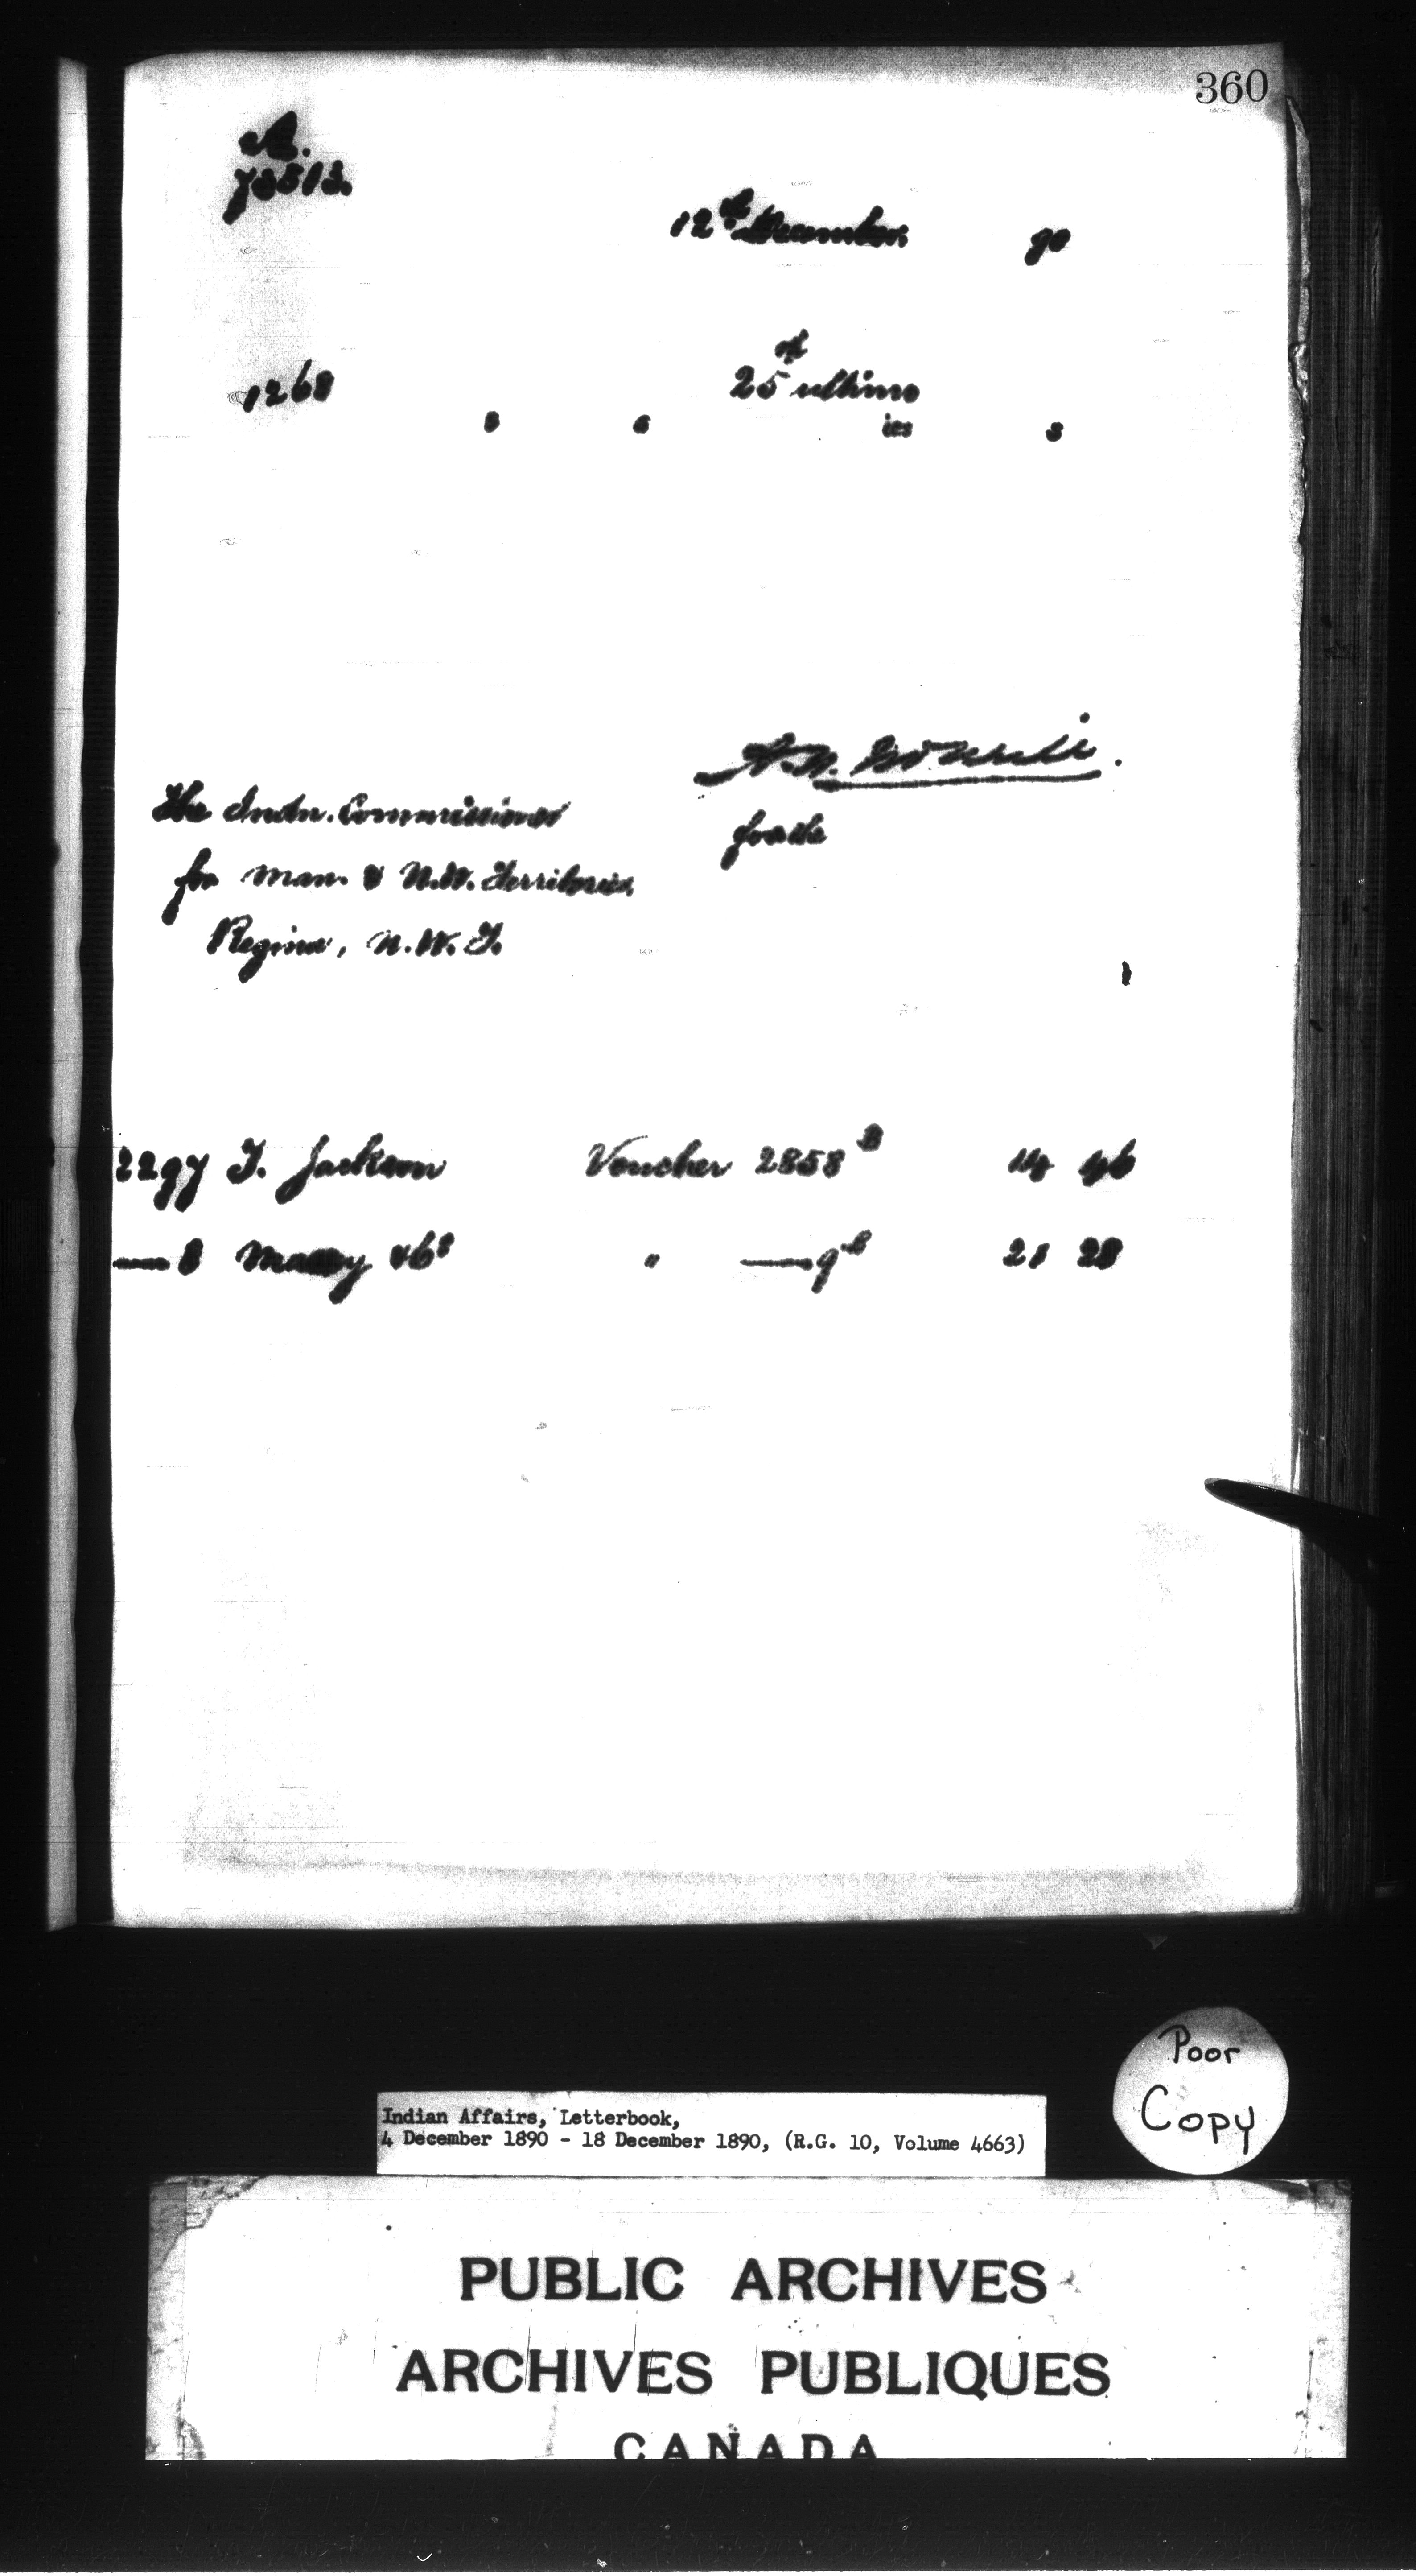 360
A.
12th December 90
of
1268 25 ultimo
s s ies s
The Indn. Commissioner
for Man. & N.W. Territories
for the
Regina, N.W.T.
2297 T. Jackson Voucher 2858 B 14 46
— 8 Massey & Co " — 9 B 21 28
Poor
Copy
Indian Affairs, Letterbook,
4 December 1890 - 18 December 1890, (R.G. 10, Volume 4663)
PUBLIC ARCHIVES
ARCHIVES PUBLIQUES
CANADA